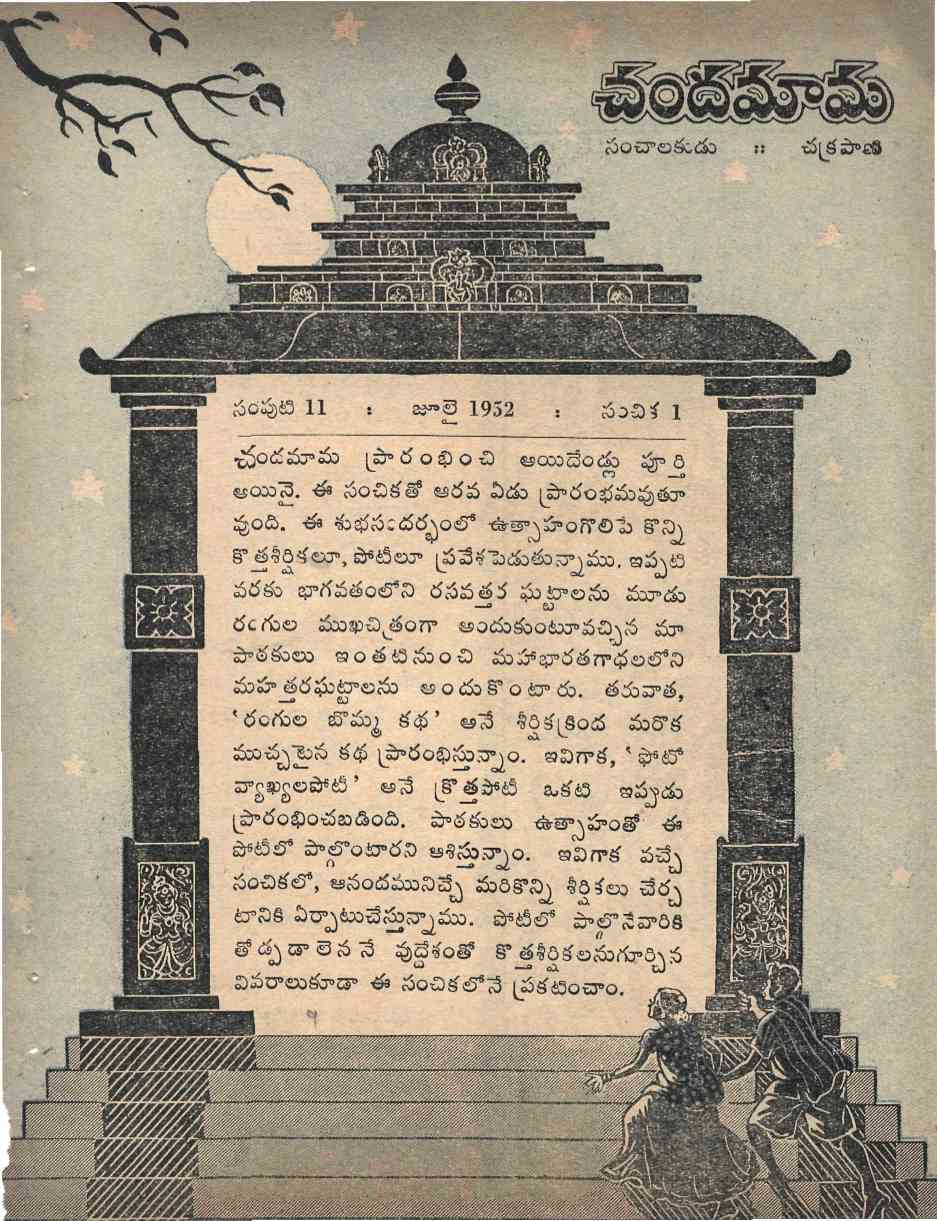 చందమామ
సంచాలకుడు :: చక్రపాణి
సంపుటి 11 : జూలై 1952 : సంచిక 1
చందమామ ప్రారంభించి అయిదేండ్లు పూర్తి
అయినై. ఈ సంచికతో ఆరవ ఏడు ప్రారంభమవుతూ
వుంది. ఈ శుభసందర్భంలో ఉత్సాహంగొలిపే కొన్ని
కొత్తశీర్షికలూ, పోటీలూ ప్రవేశపెడుతున్నాము. ఇప్పటి
వరకు భాగవతంలోని రసవత్తర ఘట్టాలను మూడు
రంగుల ముఖచిత్రంగా అందుకుంటూవచ్చిన మా
పాఠకులు ఇంతటినుంచి మహాభారతగాధలలోని
మహత్తరఘట్టాలను అందుకొంటారు. తరువాత,
‘రంగుల బొమ్మ కథ’ అనే శీర్షికక్రింద మరొక
ముచ్చటైన కథ ప్రారంభిస్తున్నాం. ఇవిగాక, ‘ఫోటో
వ్యాఖ్యలపోటీ’ అనే క్రొత్తపోటీ ఒకటి ఇప్పుడు
ప్రారంభించబడింది. పాఠకులు ఉత్సాహంతో ఈ
పోటీలో పాల్గొంటారని ఆశిస్తున్నాం. ఇవిగాక వచ్చే
సంచికలో, ఆనందమునిచ్చే మరికొన్ని శీర్షికలు చేర్చ
టానికి ఏర్పాటుచేస్తున్నాము. పోటీలో పాల్గొనేవారికి
తోడ్పడాలెననే వుద్దేశంతో కొత్తశీర్షికలనుగూర్చిన
వివరాలుకూడా ఈ సంచికలోనే ప్రకటించాం.